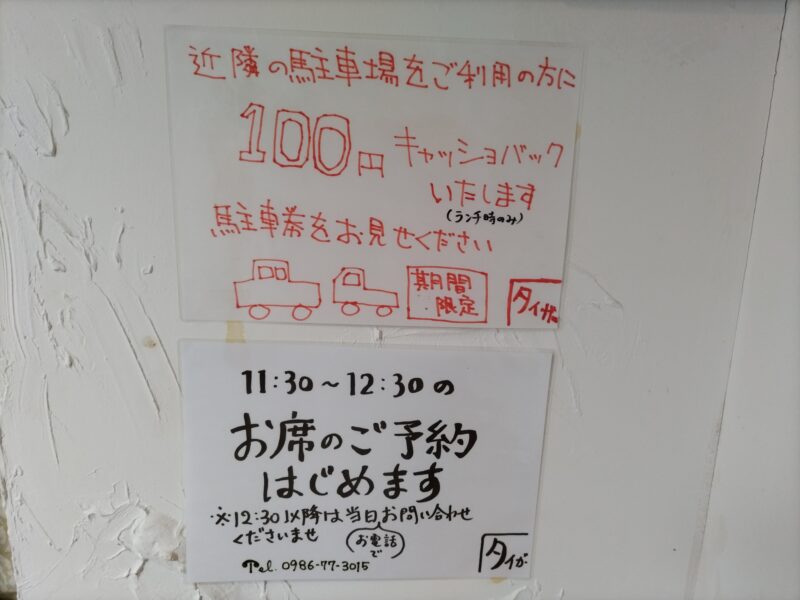 近隣の駐車場をご利用の方に
100円 キャッシュバック
いたします
(ランチ時のみ)
駐車券をお見せください
期間
限定
タイガー
11:30〜12:30の
お席のご予約
はじめます
※12:30以降は当日お問い合わせ
くださいませ
お電話
で
Tel. 0986-77-3015
タイガー